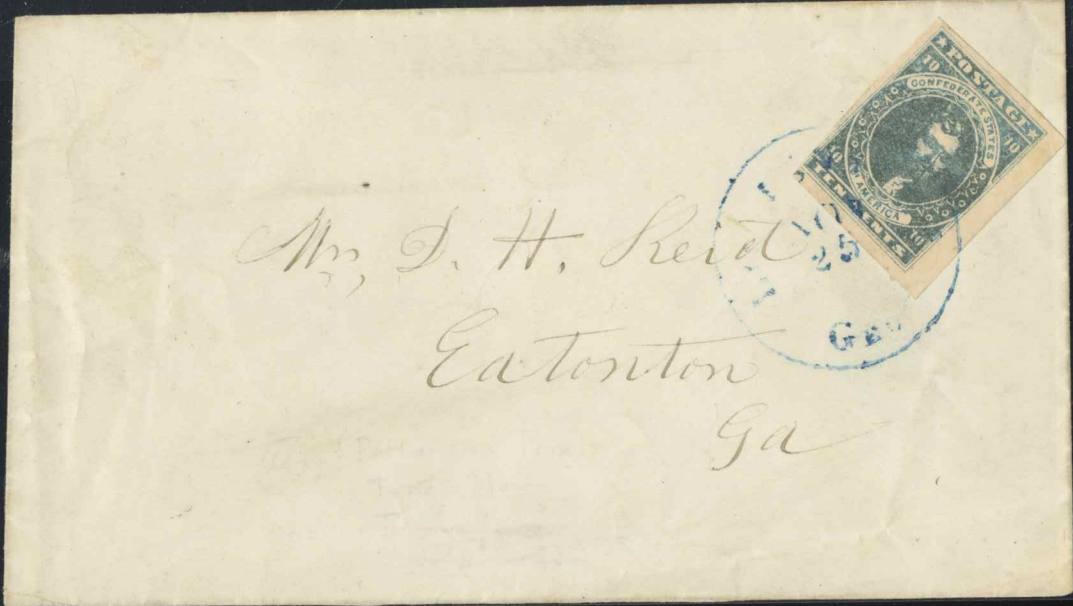 ★ POSTAGE ★
10 10
CONFEDERATE STATES
OF AMERICA
10 10
TEN CENTS
25
Geo
Mr, D. H. Reid
Eatonton
Ga